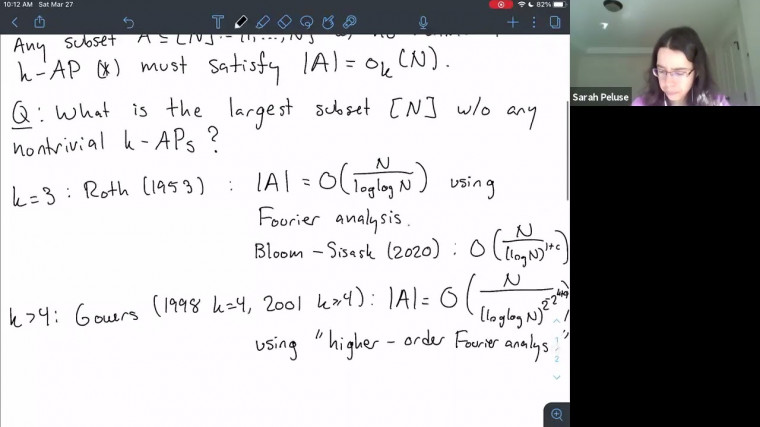 10:12 AM Sat Mar 27
82%
Any subset A ⊆ [N] := {1,...,N} w/ no
k-AP (*) must satisfy |A| = o_k(N).
Q: What is the largest subset [N] w/o any
nontrivial k-APs?
k=3: Roth (1953): |A| = O(N/loglogN) using
Fourier analysis.
Bloom-Sisask (2020): O(N/(logN)^{1+c})
k>4: Gowers (1998 k=4, 2001 k≥4): |A| = O(N/(loglogN)
using "higher-order Fourier analys
1
2
Sarah Peluse